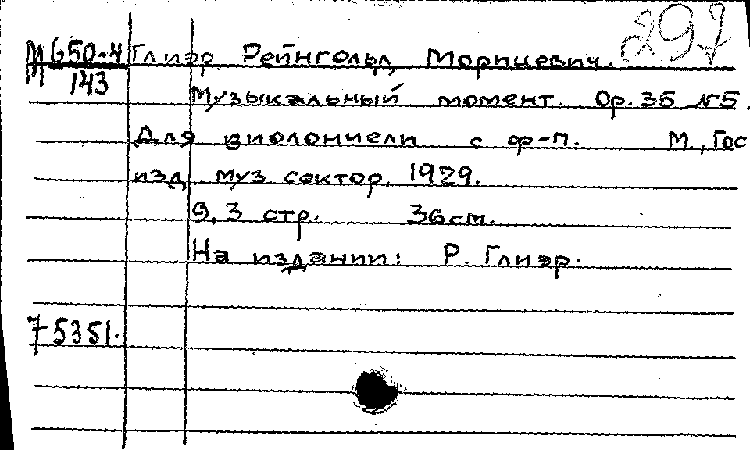 297
М 650-4 Глиэр Рейнгольд Морицевич.
М 143
Музыкальный момент. Op. 35 №5.
Для виолончели с ф-п. М., Гос
изд муз сектор, 1929.
9, 3 стр. 36см.
На издании: Р. Глиэр.
75351.